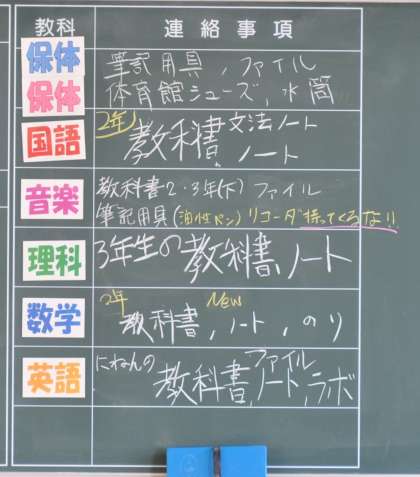 教科 連絡事項
保体 筆記用具,ファイル
保体 体育館シューズ,水筒
国語 2年 教科書,文法ノート
ノート
音楽 教科書2・3年(下) ファイル
筆記用具(油性ペン) リコーダ持ってくるな!!
理科 3年生の教科書,ノート
数学 2年 New
教科書,ノート,のり
英語 にねんの 教科書,ファイル
ノート,ラボ